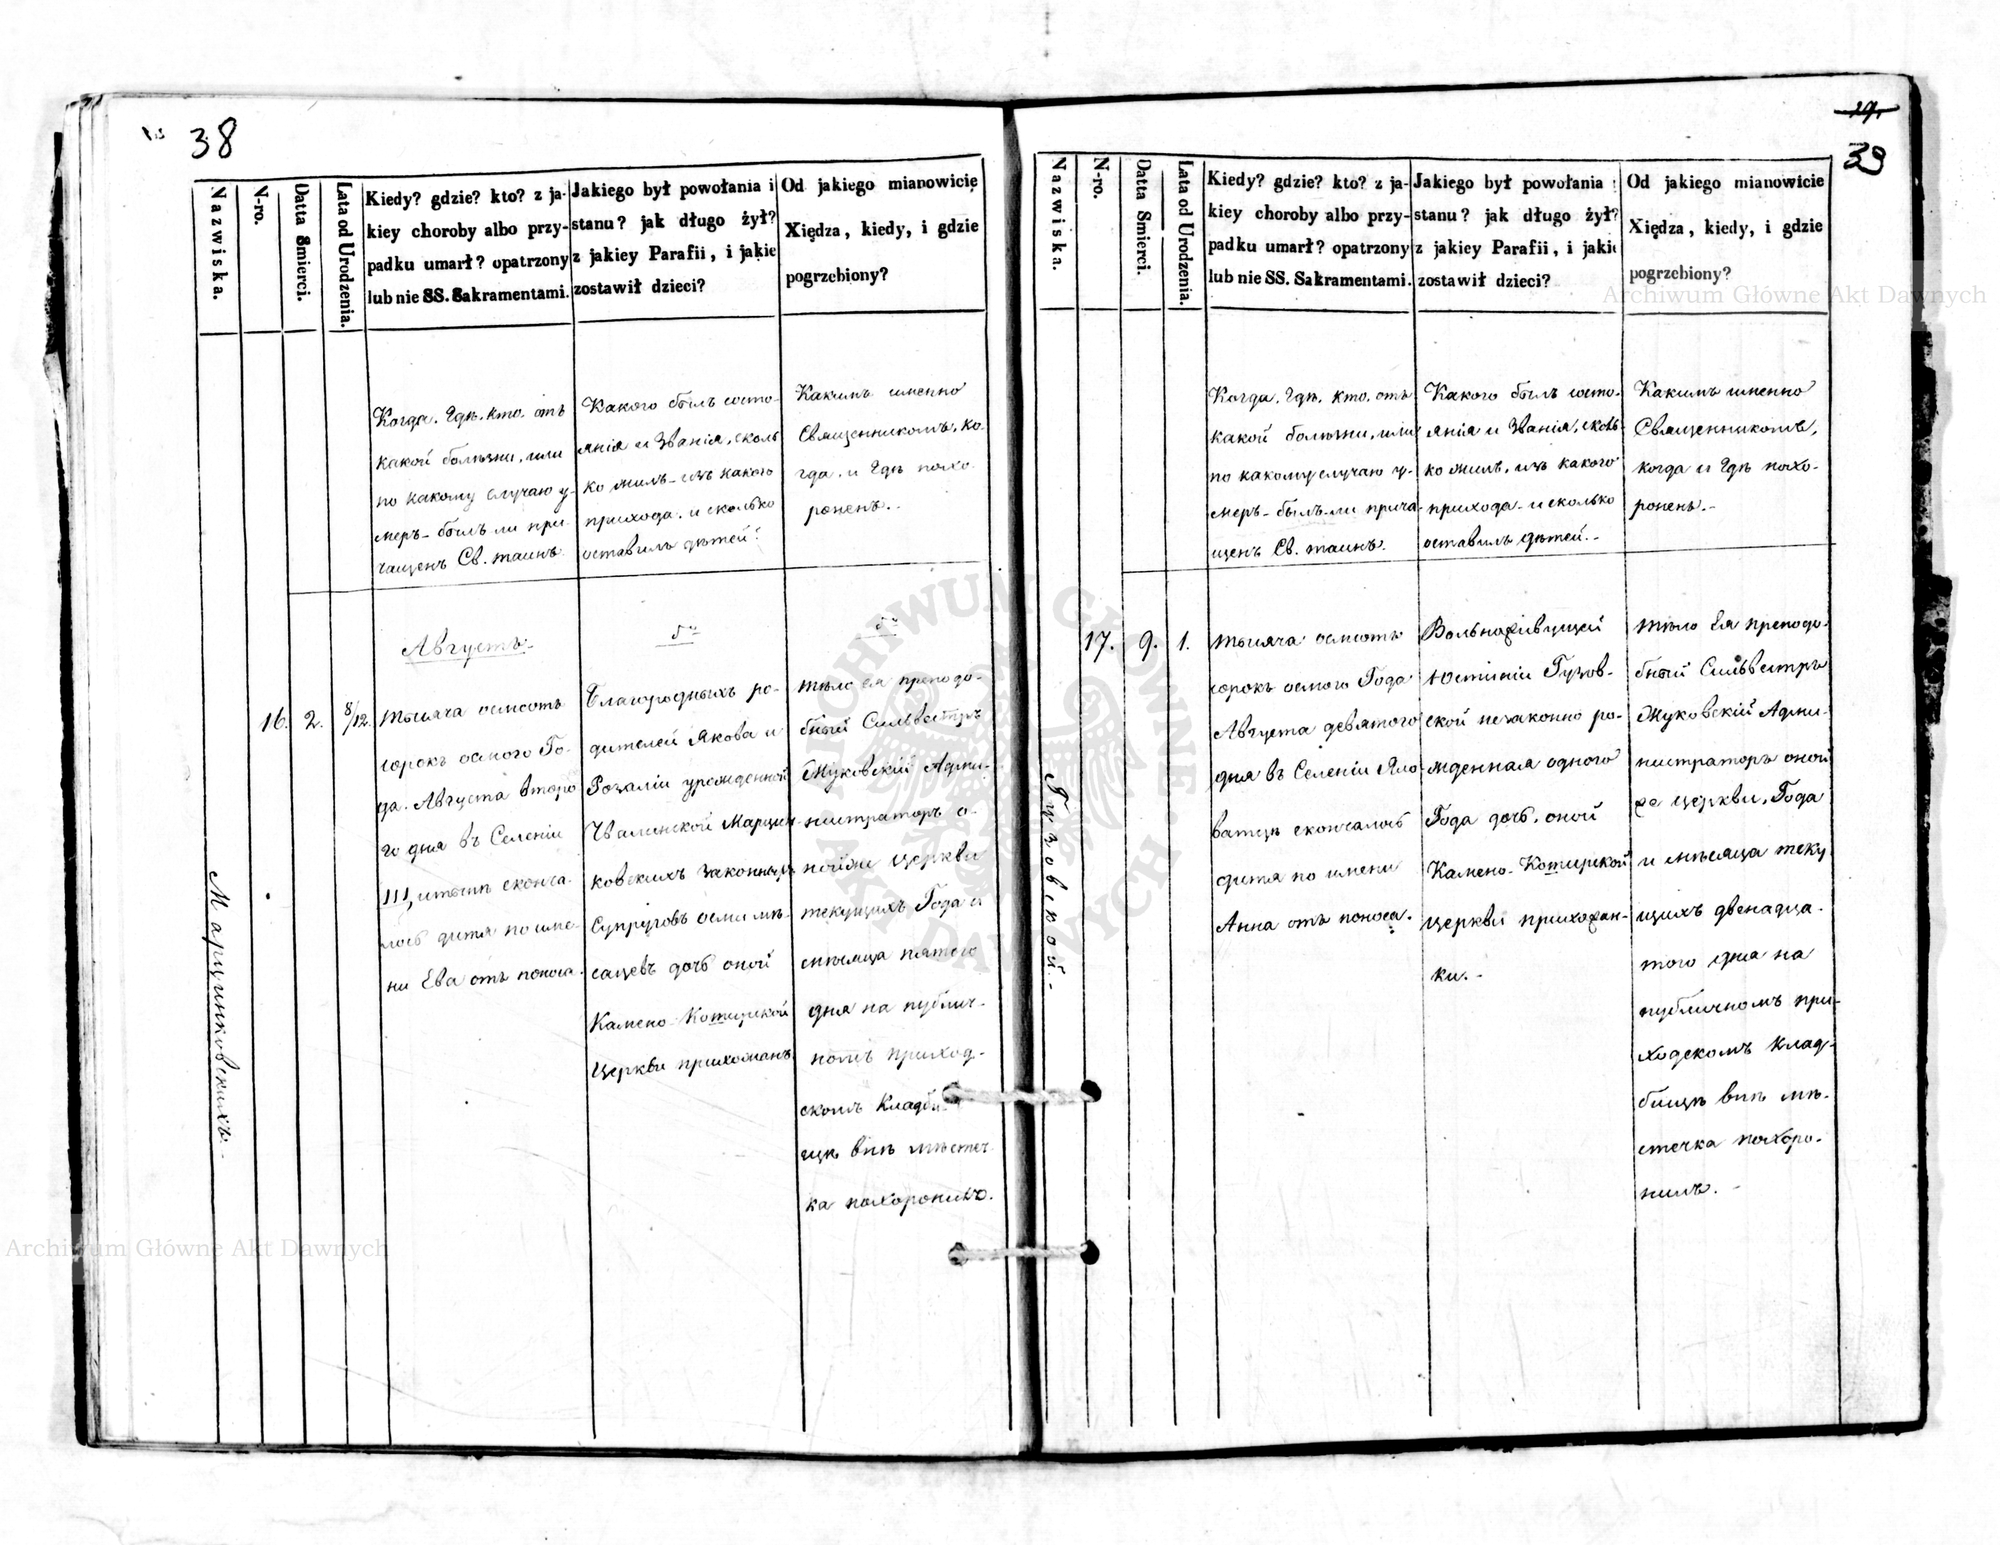 38
Nazwiska.
N-ro.
Datta Smierci.
Lata od Urodzenia.
Kiedy? gdzie? kto? z ja-
kiey choroby albo przy-
padku umarł? opatrzony
lub nie SS. Sakramentami.
Jakiego był powołania i
stanu? jak długo żył?
z jakiey Parafii, i jakie
zostawił dzieci?
Od jakiego mianowicię
Xiędza, kiedy, i gdzie
pogrzebiony?
Когда, гдѣ, кто, отъ
какой болѣзни, или
по какому случаю у-
меръ - былъ ли при-
чащенъ Св. таинъ
Какого былъ состо-
янія и Званія, сколь
ко жилъ - изъ какого
прихода. и сколько
оставилъ дѣтей?
Какимъ именно
Священникомъ, ко-
гда. и гдѣ похо-
роненъ. -
Августъ.
Марцинковскихъ.
16.
2.
8/12.
тысяча осмсотъ
сорокъ осмого Го-
да. Августа второ
го дня въ Селеніи
Щитынѣ сконча-
лось дитя по име-
ни Ева отъ поноса.
Благородныхъ ро-
дителей Якова и
Розаліи урожденной
Чвалинской Марцин-
ковскихъ законныхъ
Супруговъ осми мѣ-
сацевъ дочь оной
Камено-Котирской
Церкви прихожанъ
тѣло ея преподо-
бный Сильвестръ
Жуковскій Адми-
нистраторъ о-
нойже церкви
текущихъ Года и
мѣсяца пятого
дня на публич-
номъ приход-
скомъ Кладби-
щѣ внѣ мѣстеч-
ка похоронилъ.
39
Nazwiska.
N-ro.
Datta Smierci.
Lata od Urodzenia.
Kiedy? gdzie? kto? z ja-
kiey choroby albo przy-
padku umarł? opatrzony
lub nie SS. Sakramentami.
Jakiego był powołania
stanu? jak długo żył?
z jakiey Parafii, i jakie
zostawił dzieci?
Od jakiego mianowicie
Xiędza, kiedy, i gdzie
pogrzebiony?
Когда, гдѣ, кто, отъ
какой болѣзни, или
по какому случаю у-
меръ - былъ-ли прича-
щенъ Св. таинъ.
Какого былъ состо-
янія и Званія, сколь
ко жилъ, изъ какого
прихода - и сколько
оставилъ дѣтей. -
Какимъ именно
Священникомъ,
когда и гдѣ похо-
роненъ. -
Гузовской. -
17.
9.
1.
тысяча осмсотъ
сорокъ осмого Года
Августа девятого
дня въ Селеніи Яло
ватцѣ скончалось
дитя по имени
Анна отъ поноса.
Вольноживущей
Юстиніи Гузов-
ской незаконно ро-
жденная одного
Года дочь, оной
Камено-Котирской
церкви прихожан-
ки. -
тѣло Ея преподо-
бный Сильвестръ
Жуковскій Адми-
нистраторъ оной
же церкви, Года
и мѣсяца теку
щихъ двенадца-
того дня на
публичномъ при-
ходскомъ клад-
бищѣ внѣ мѣ-
стечка похоро-
нилъ. -
Archiwum Główne Akt Dawnych
Archiwum Główne Akt Dawnych
ARCHIWUM GŁÓWNE AKT DAWNYCH